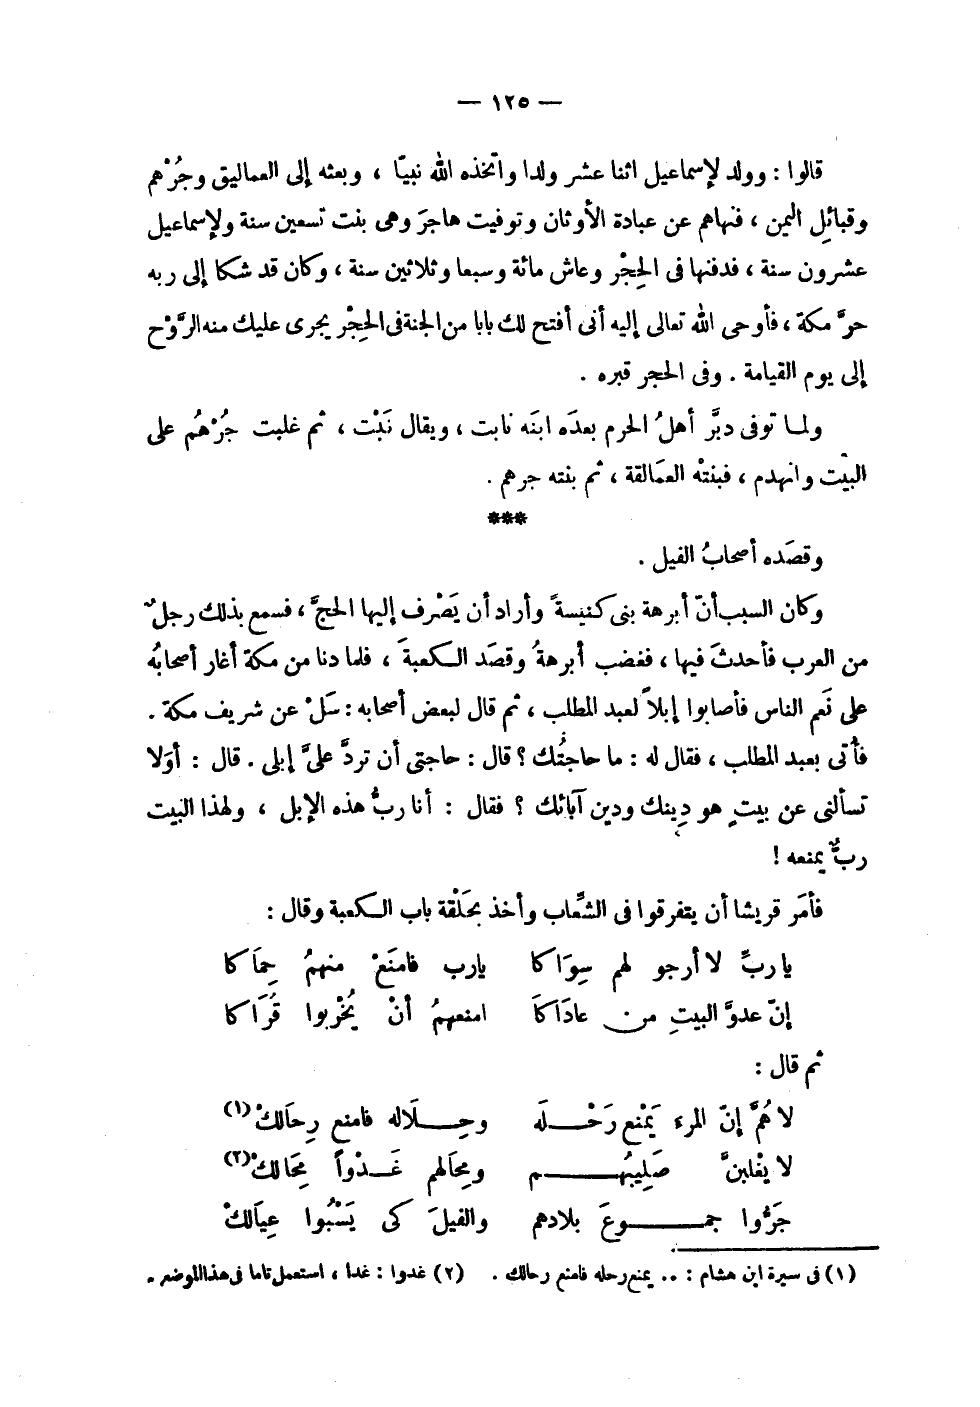 — ١٢٥ —
قالوا : وولد لإسماعيل اثنا عشر ولدا واتخذه الله نبيّا ، وبعثه إلى العماليق وجُرْهم
وقبائِل اليمن ، فنهاهم عن عبادة الأوثان وتوفيت هاجرَ وهى بنت تسعين سنة ولإسماعيل
عشرون سنة ، فدفنها فى الحِجْر وعاش مائة وسبعا وثلاثين سنة ، وكان قد شكا إلى ربه
حرَّ مكة ، فأوحى الله تعالى إليه أنى أفتح لك بابا من الجنة فى الحِجْر يجرى عليك منه الرَّوْح
إلى يوم القيامة . وفى الحجر قبره .
ولما توفى دبَّر أهلُ الحرم بعدَه ابنَه نابت ، ويقال نَبْت ، ثم غلبت جُرْهُم على
البيْت وانهدم ، فبنتْه العمَالقة ، ثم بنته جرهم .
***
وقصَده أصحابُ الفيل .
وكان السبب أنّ أبرهة بنى كنيسةً وأراد أن يَصْرف إليها الحجَّ ، فسمع بذلك رجلٌ
من العرب فأحدثَ فيها ، فغضب أبرهةُ وقصَد الكعبةَ ، فلما دنا من مكة أغار أصحابُه
على نَعم الناس فأصابوا إبلاً لعبد المطلب ، ثم قال لبعض أصحابه : سَلْ عن شريف مكة .
فأُتى بعبد المطلب ، فقال له : ما حاجتُك ؟ قال : حاجتى أن تردَّ علىَّ إبلى . قال : أوَلا
تسألنى عن بيتٍ هو دِينك ودين آبائك ؟ فقال : أنا ربُّ هذه الإبل ، ولهذا البيت
ربٌّ يمنعه !
فأمَر قريشا أن يتفرقوا فى الشِّعاب وأخذ بحَلْقة باب الكعبة وقال :
يا ربِّ لا أرجو لهم سِوَاكا يارب فامنَعْ منهمُ حِمَاكا
إنّ عدوَّ البيتِ من عادَاكاَ امنعهمُ أنْ يُخْربوا قُرَاكا
ثم قال :
لا هُمَّ إنّ المرء يَمْنع رَحْلَه وحِلَاله فامنع رِحَالكْ(١)
لا يغْلبنَّ صَلِيبُهُم ومِحَالهم غَدْواً مِحَالكْ(٢)
جَرُّوا جموعَ بلادهم والفيلَ كى يَسْبُوا عِيَالكْ
(١) فى سيرة ابن هشام : .. يمنع رحله فامنع رحالك . (٢) غدوا : غدا ، استعمل تاما فى هذا الموضع .